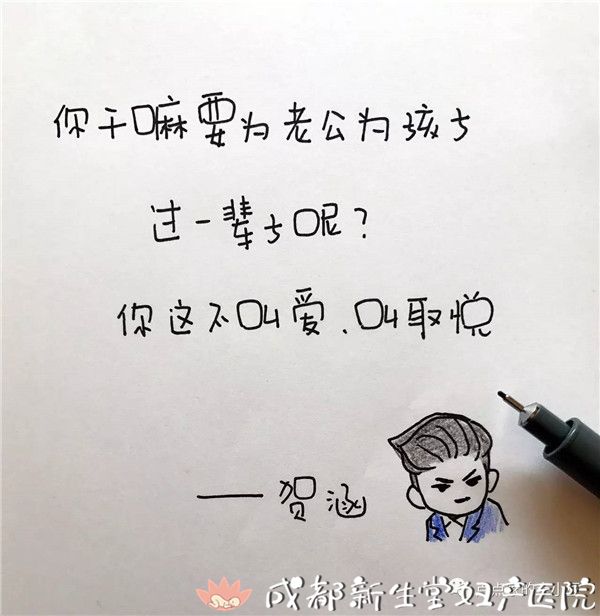 你干嘛要为老公为孩子
过一辈子呢?
你这不叫爱、叫取悦
——贺涵
成都新生堂妇产医院